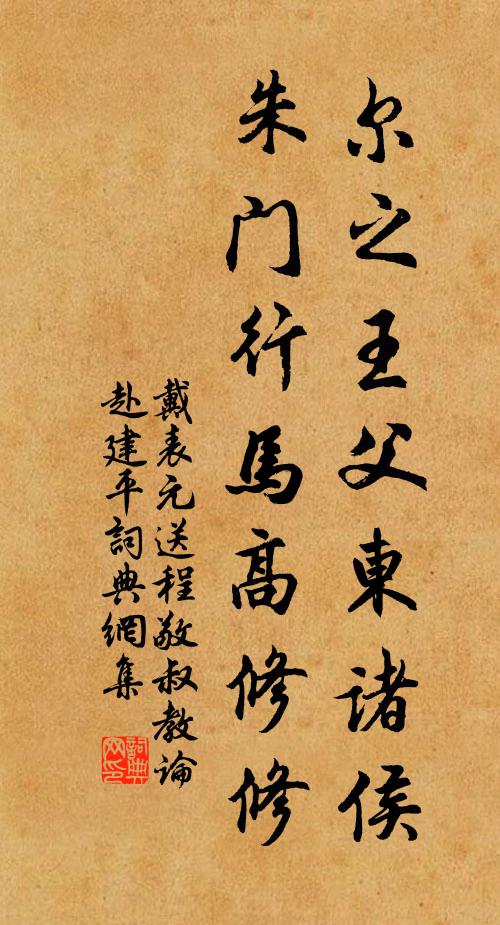 尔之王父東諸侯
朱门行馬高修修
戴表元送程敬叔教論
赴建平詞典網集
詞典网印